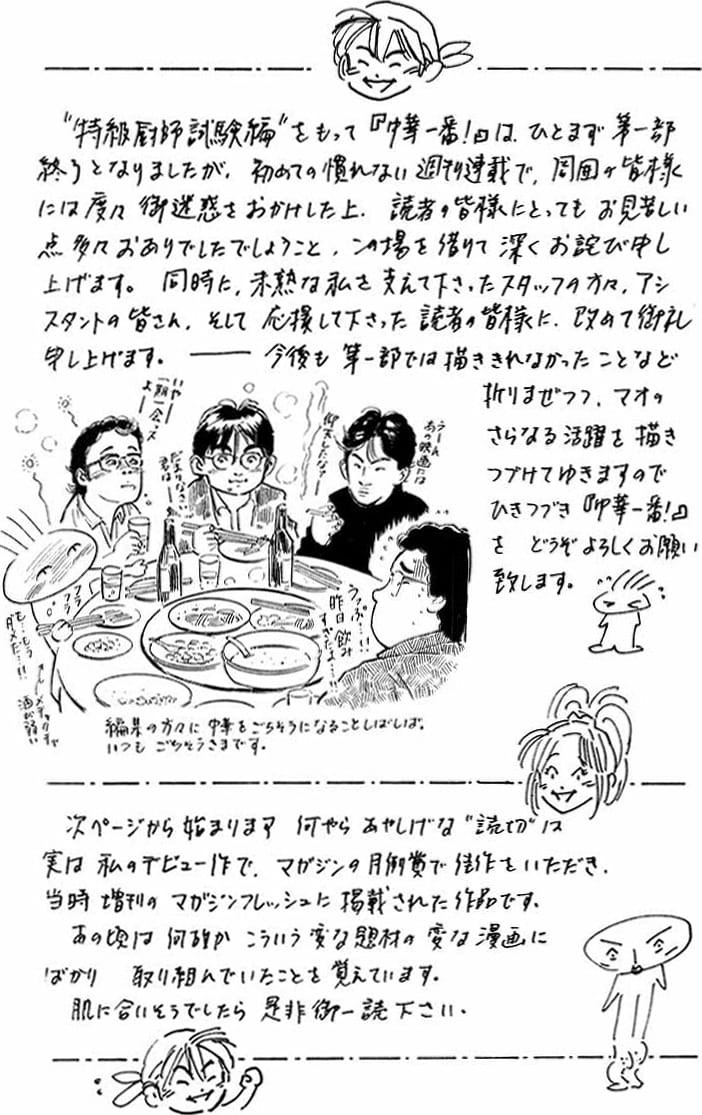 "特級厨師試験編"をもって『中華一番!』は、ひとまず第一部
終うとなりましたが、初めての慣れない週刊連載で、周囲の皆様
には度々御迷惑をおかけした上、読者の皆様にとってもお見苦しい
点多々おありでしたでしょうこと、この場を借りて深くお詫び申し
上げます。同時に、未熟な私を支えて下さったスタッフの方々、アシ
スタントの皆さん、そして応援して下さった読者の皆様に、改めて御礼
申し上げます。――今後も第一部では描ききれなかったことなど
折りまぜつつ、マオの
さらなる活躍を描き
つづけてゆきますので
ひきつづき『中華一番!』
を どうぞよろしくお願い
致します。
うーん
あの映画には
仰天したなァ
いやー
一期一会っス
よー
だまりなさい
君はー
うっぷ…!!
昨日飲み
すぎたよ…!!
フラ
フラ
も…もう
ダメだ…!!
メチャクチャ
酒が弱い
編集の方々に中華をごちそうになることしばしば。
いつもごちそうさまです。
次ページから始まります 何やらあやしげな"読切"は
実は私のデビュー作で、マガジンの月例賞で佳作をいただき、
当時増刊のマガジンフレッシュに掲載された作品です。
あの頃は何故かこういう変な題材の変な漫画に
ばかり 取り組んでいたことを覚えています。
肌に合いそうでしたら是非御一読下さい。